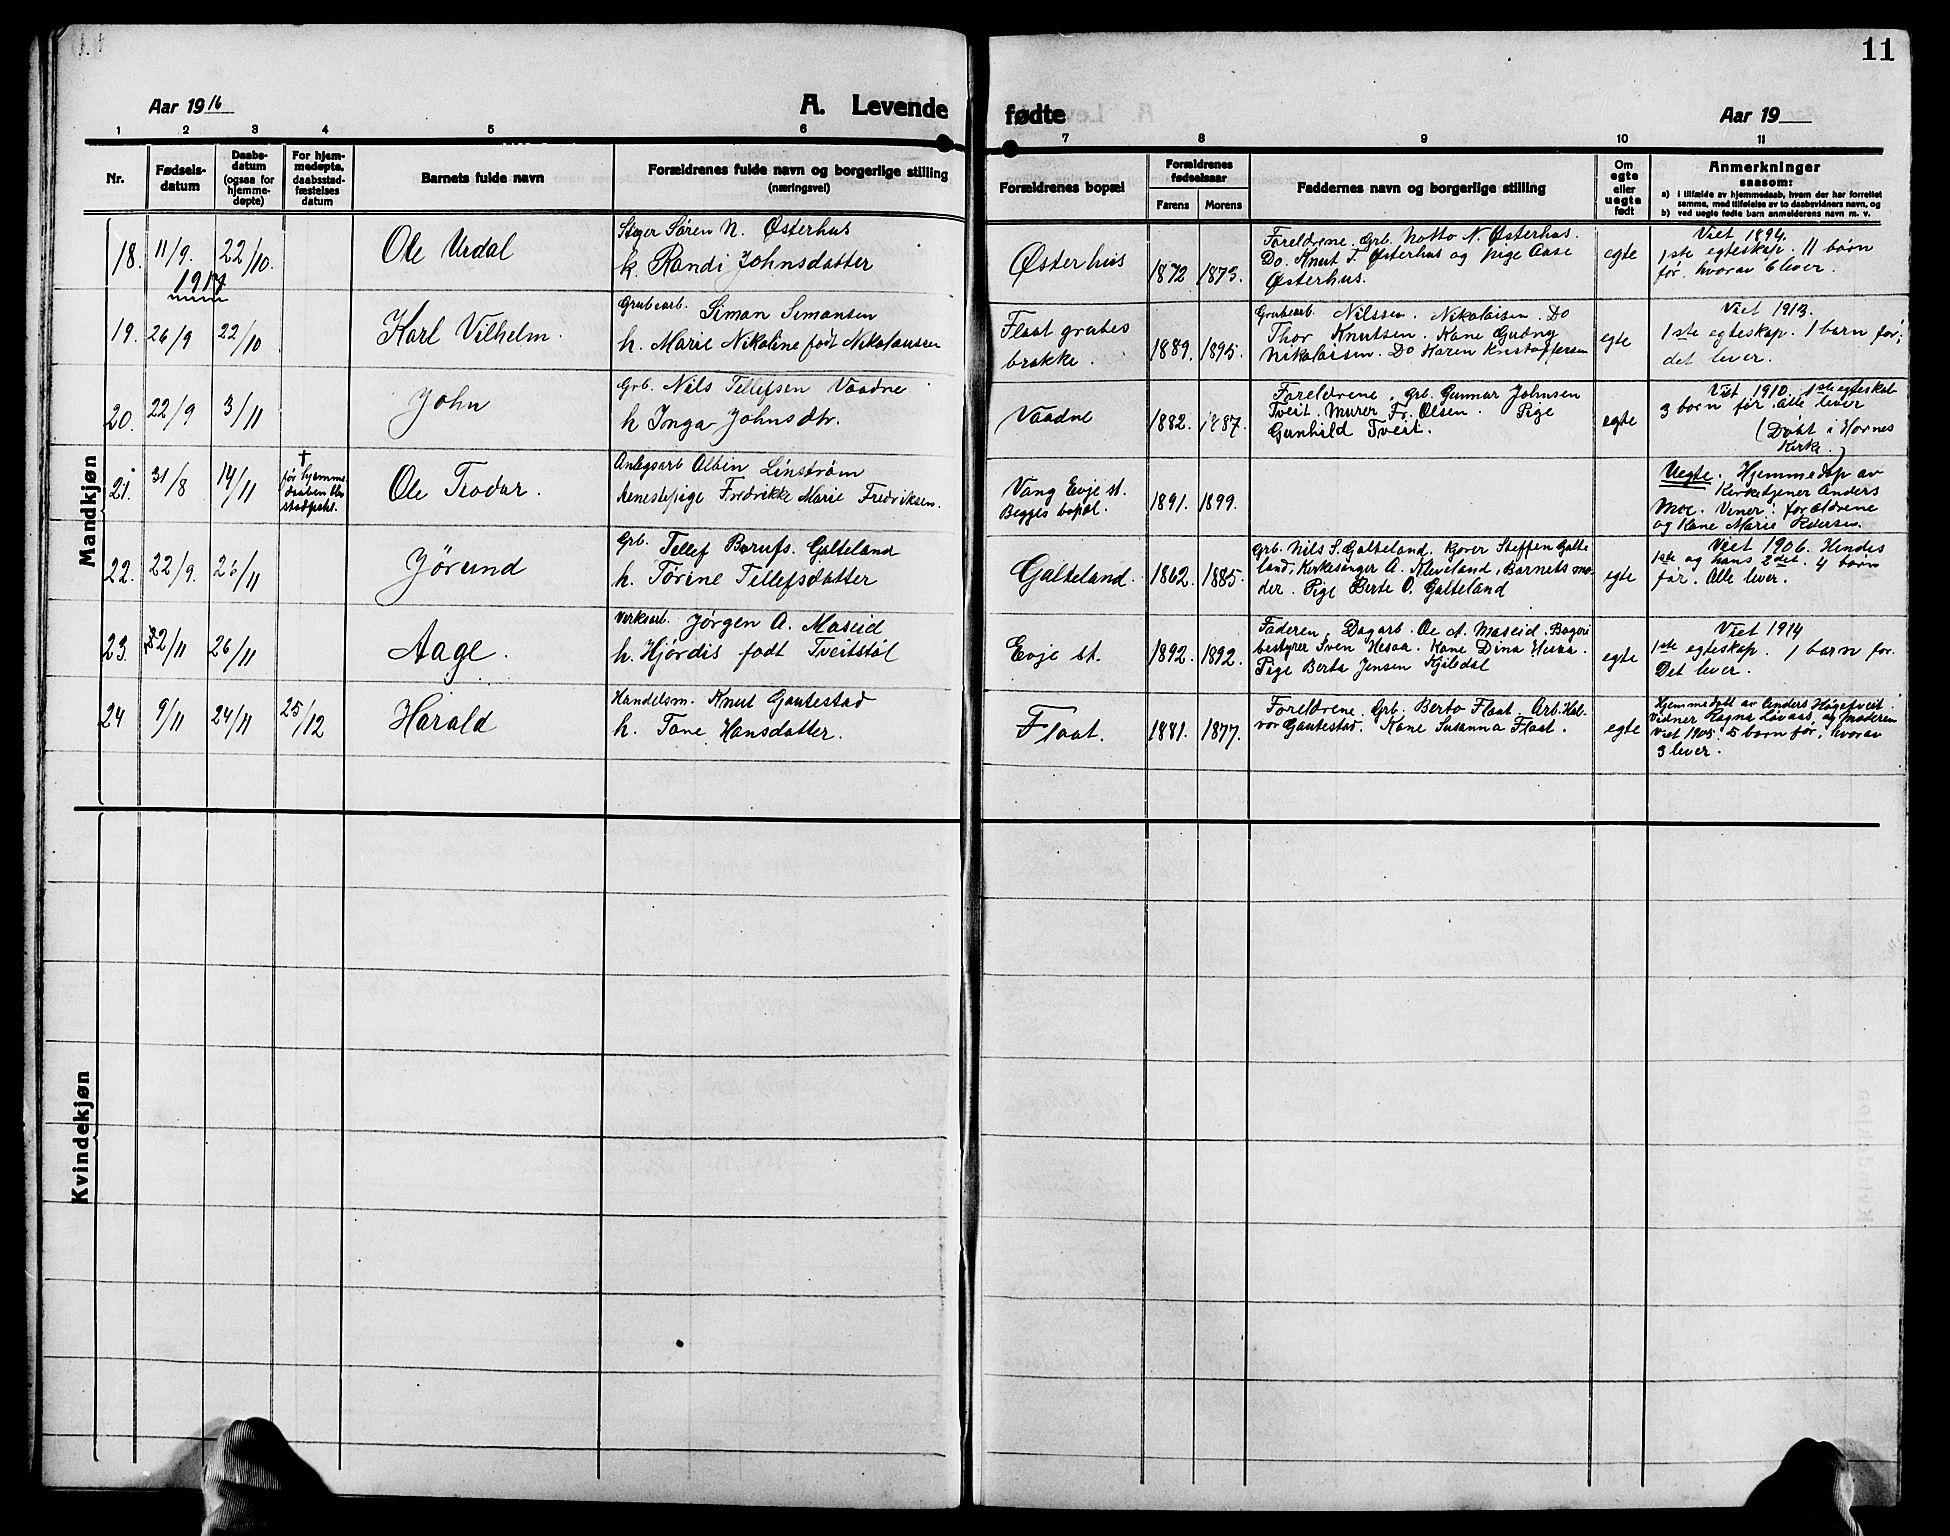 11
Aar 1916
A. Levende
fødte
Aar 19
1 2 3 4 5 6 7 8 9 10 11
Nr.
Fødsels-
datum
Daabs-
datum
(ogsaa for
hjemme-
døpte)
For hjem-
medøpte,
daabsstad-
fæstelses
datum
Barnets fulde navn
Forældrenes fulde navn og borgerlige stilling
(næringsvei)
Forældrenes bopæl
Forældrenes
fødselsaar
Farens Morens
Faddernes navn og borgerlige stilling
Om
egte
eller
uegte
født
Anmerkninger
saasom:
a) i tilfælde av hjemmedaab, hvem der har forrettet
samme, med tilføielse av to daabsvidners navn, og
b) ved uegte fødte barn anmelderens navn m. v.
Mandkjøn
18. 11/9. 22/10.
Ole Urdal
Søren N. Østerhus
k. Randi Johnsdatter
Østerhus
1872 1873.
Foreldrene. Grb. Notto N. Østerhus.
Do. Knut T. Østerhus og pige Aase
Østerhus.
egte
Viet 1894.
1ste egteskap. 11 børn
før, hvorav 6 lever.
1917
19. 26/9 22/10
Karl Vilhelm.
Grubearb. Simon Simonsen
h. Marie Nikoline født Nikolaussen
Flaat grubes
brakke.
1889. 1895.
Grubearb. Nilssen. Nikolaisen. Do
Thor Knutsen. Kone Gudny
Nikolaisen. Do Karen Kristoffersen
egte
Viet 1913.
1ste egteskap. 1 barn før,
det lever.
20. 22/9 3/11
John
Grb. Nils Tellefsen Vaadne
h Inga Johnsdtr.
Vaadne
1882. 1887.
Foreldrene, Grb. Gunnar Johnsen
Tveit. Murer Fr. Olsen. Pige
Gunhild Tveit.
egte
Viet 1910. 1ste egteskab
3 born før. alle lever
(Døbt i Hornes
Kirke)
21. 31/8 14/11
†
før hjemme
daaben blev
stadfæstet.
Ole Teodor.
Anlegsarb Albin Linstrøm
Tjenestepige Fredrikke Marie Fredriksen.
Vang Evje st.
Begges bopæl.
1891. 1899.
Uegte. Hjemmedøp av
Kirketjener Anders
Moe. Vitner: forældrene
og Kone Marie Pedersen.
22. 22/9. 26/11
Jørund
Grb. Tellef Barufs. Galteland
h. Torine Tellefsdatter
Galteland.
1862. 1885.
Grb. Nils S. Galteland. Kjører Steffen Galte
land, Kirkesanger A. Kleveland, Barnets mo
der. Pige Berte O. Galteland
egte
Viet 1906. Hendes
1ste og hans 2det. 4 børn
før. Alle lever.
23. 2/11 26/11
Aage.
Verksarb. Jørgen A. Maseid
h. Hjørdis født Tveitstøl
Evje st.
1892. 1892.
Faderen, Dagarb. Ole A. Maseid. Bageri
bestyrer Sven Hesaa. Kone Dina Hesaa.
Pige Berta Jensen Kjiledal
egte
Viet 1914
1ste egteskap. 1 barn før.
Det lever.
24 9/11 24/11 25/12
Harald
Handelsm. Knut Gautestad
h. Tone Hansdatter.
Flaat.
1881. 1877.
Foreldrene. Grb. Berto Flaat. Arb. Hal-
vor Gautestad. Kone Susanna Flaat.
egte
Hjemmedøbt av Anders Høgetveit.
Vidner Ragna Løvaas, og moderen
Viet 1905. 5 barn før, hvorav
3 lever.
Kvindekjøn